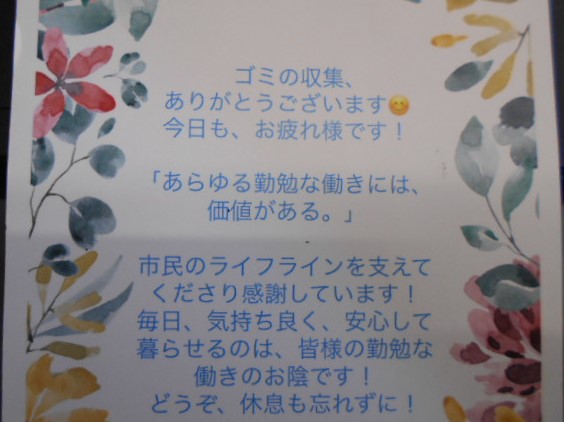 ゴミの収集、
ありがとうございます😊
今日も、お疲れ様です！
「あらゆる勤勉な働きには、
価値がある。」
市民のライフラインを支えて
くださり感謝しています！
毎日、気持ち良く、安心して
暮らせるのは、皆様の勤勉な
働きのお陰です！
どうぞ、休息も忘れずに！